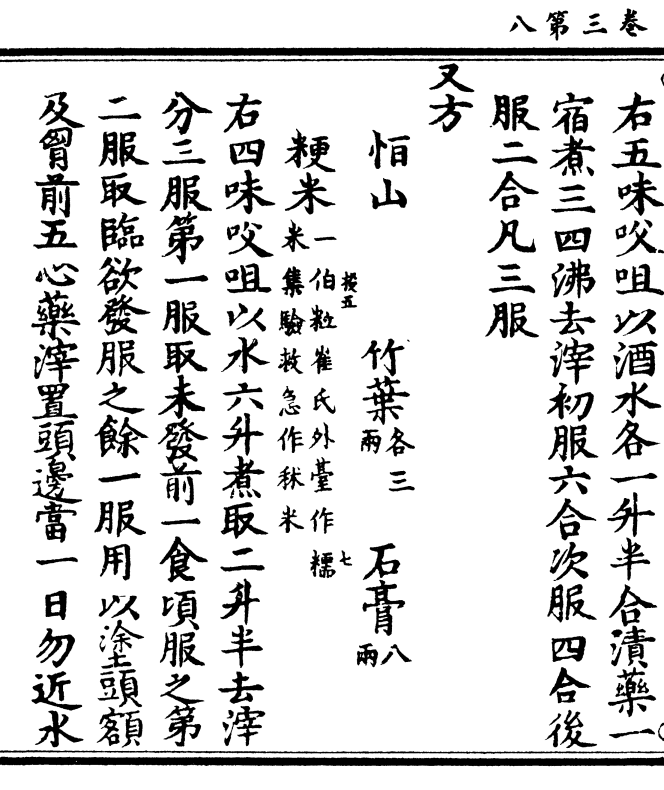 卷三第八
右五味㕮咀以酒水各一升半合漬藥一
宿煮三四沸去滓初服六合次服四合後
服二合凡三服
又方
恒山 竹葉各三兩 石膏八兩
粳米一伯粒崔氏外臺作糯米集驗救急作秫米
右四味㕮咀以水六升煮取二升半去滓
分三服第一服取未發前一食頃服之第
二服取臨欲發服之餘一服用以塗頭額
及胷前五心藥滓置頭邊當一日勿近水